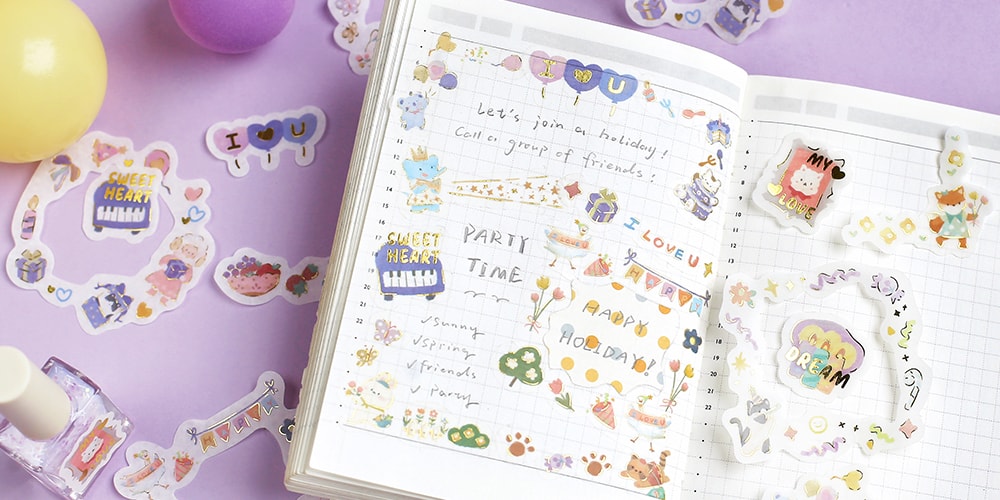 I U
I U
Let's join a holiday!
Call a group of friends!
SWEET
HEART
SWEET
HEART
PARTY
TIME
I LOVE U
I LOVE U
HAPPY
HAPPY
HOLIDAY!
✓sunny
✓spring
✓friends
✓Party
I LOVE U
MY
LOVE
DREAM